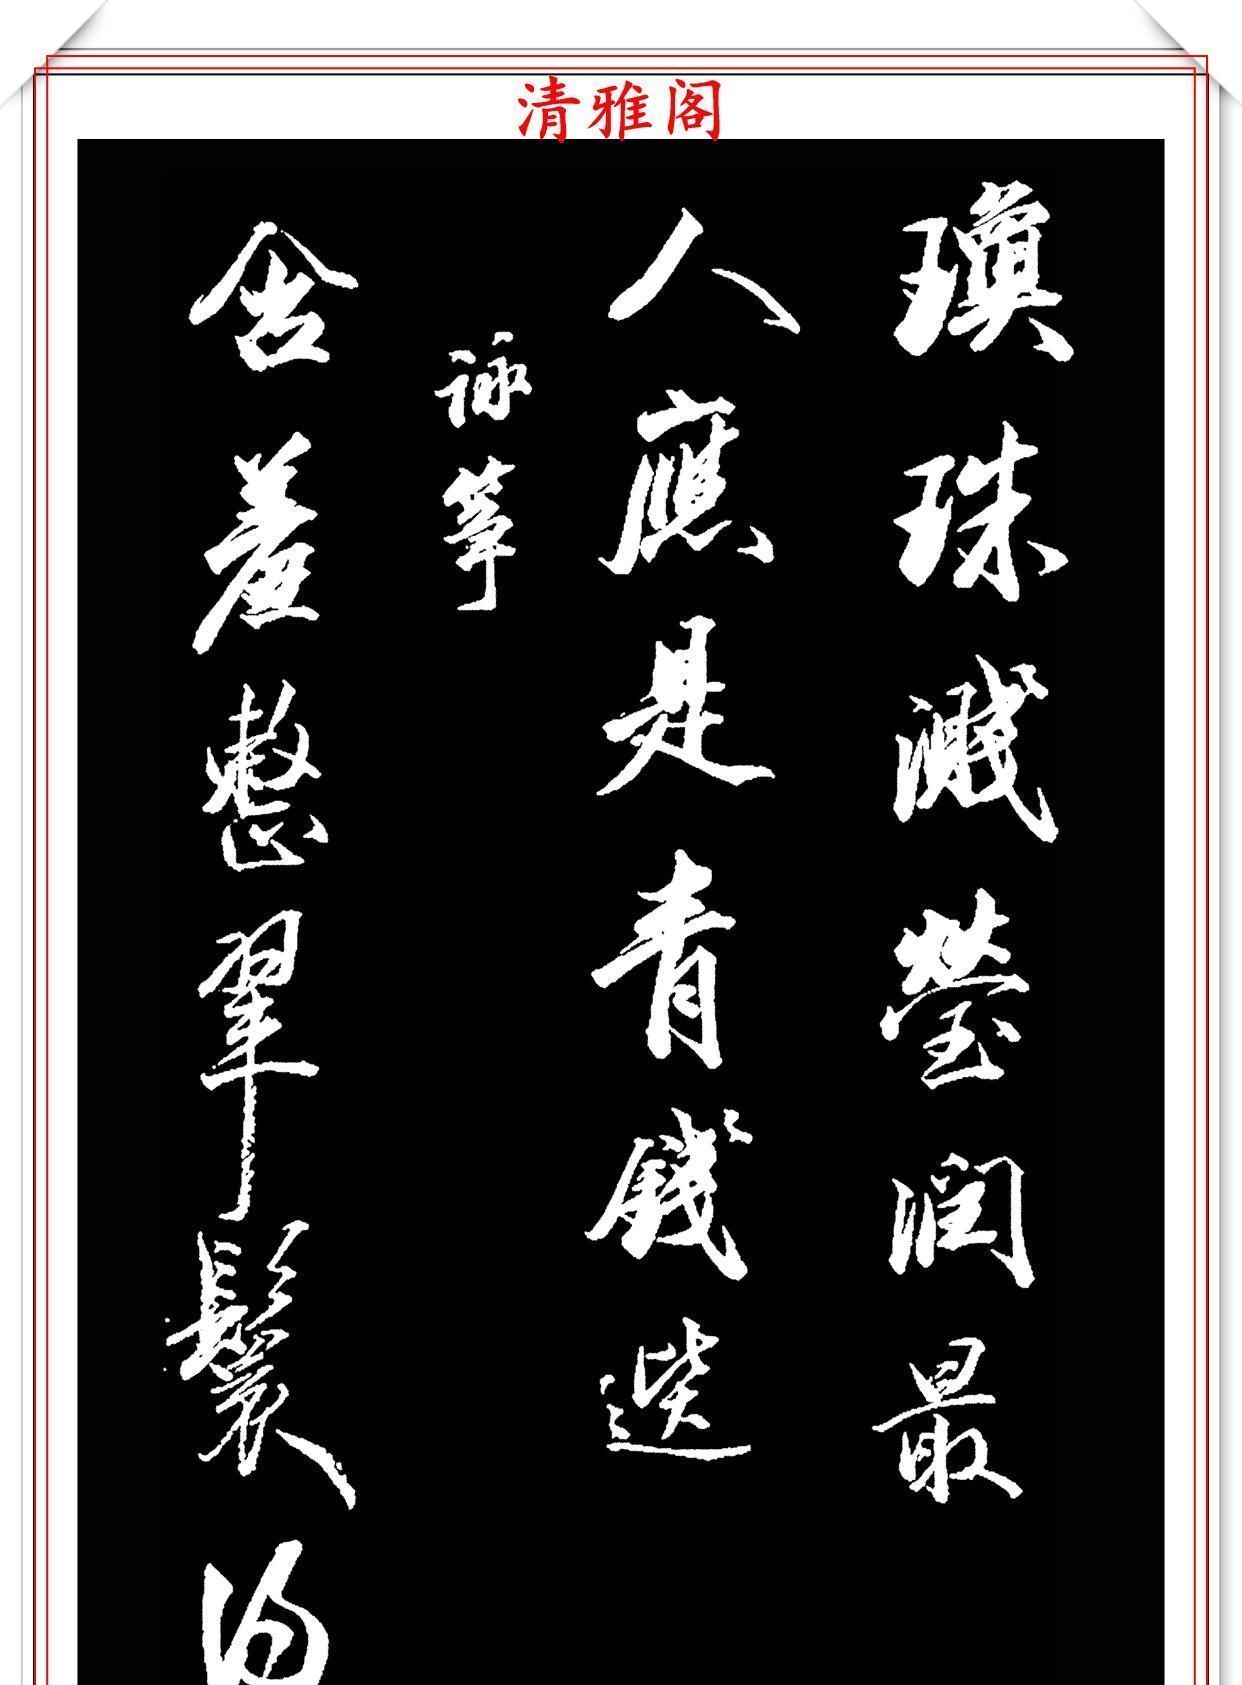 清雅阁
瓊珠濺瑩潤最
人應是青錢選
詠箏
含羞整翠鬟得